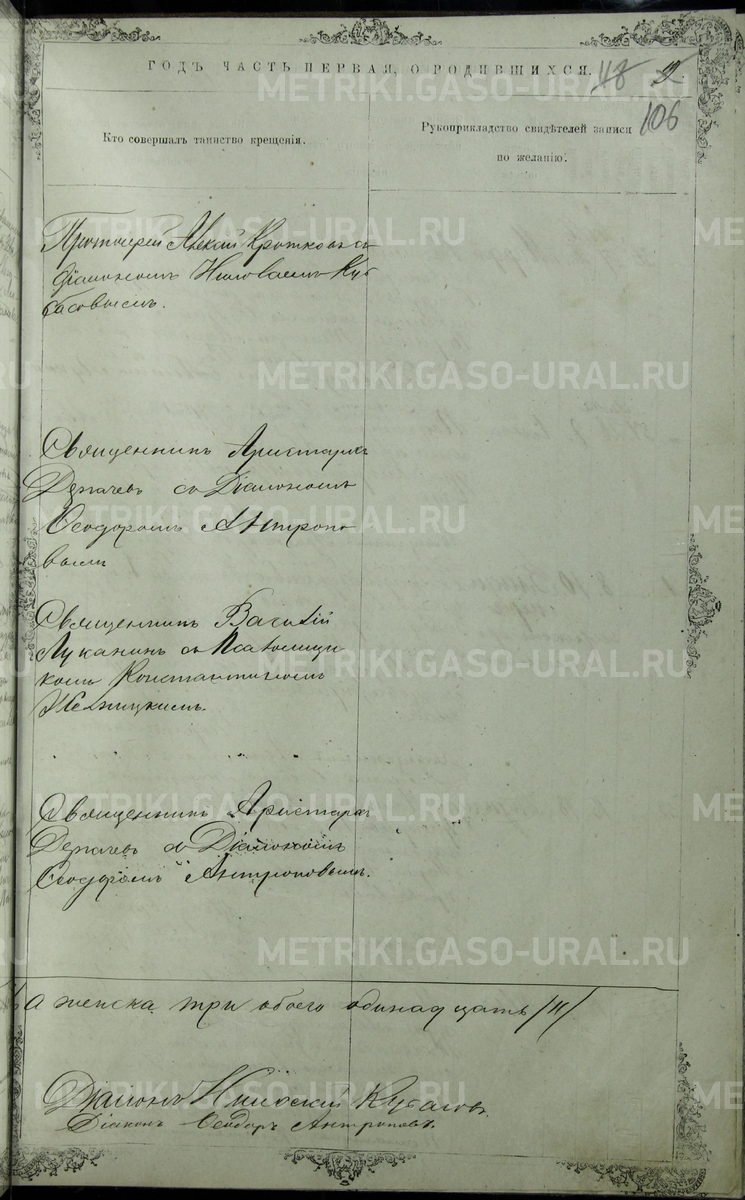 ГОДЪ ЧАСТЬ ПЕРВАЯ, О РОДИВШИХСЯ.
106
Кто совершалъ таинство крещенія.
Рукоприкладство свидѣтелей записи
по желанію.
Протоіерей Алексій Кротковъ съ
Діакономъ Николаемъ Куб
басовымъ.
Священникъ Аристархъ
Дерпачевъ съ Діакономъ
Ѳеодоромъ Антропо
вымъ
Священникъ Василій
Луканинъ съ Псаломщи
комъ Константиномъ
Священникъ Аристархъ
Дерпачевъ съ Діакономъ
Ѳеодоромъ Антроповымъ.
а женска три обоего одинадцать /11/
Діаконъ Николай
Діаконъ Ѳеодоръ Антроповъ.
METRIKI.GASO-URAL.RU